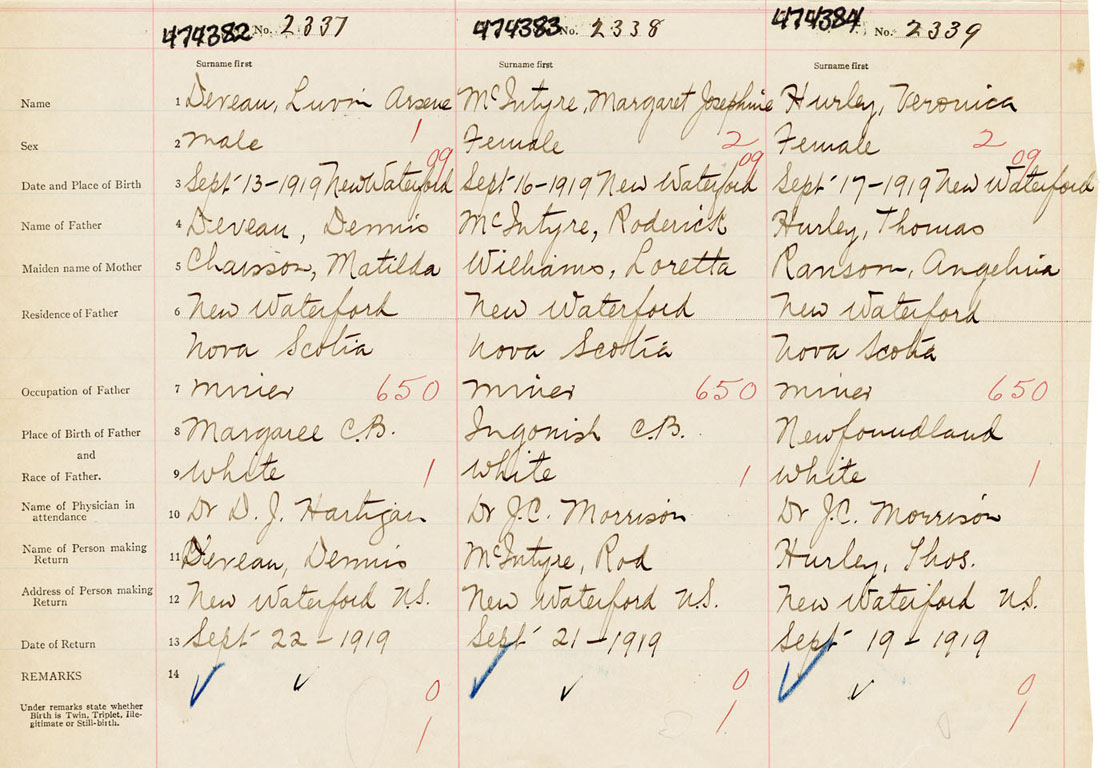 474382 No. 2337 474383 No. 2338 474384 No. 2339
Surname first Surname first Surname first
Name 1 Deveau, Luvin Arsene McIntyre, Margaret Josephine Hurley, Veronica
Sex 2 Male 1 Female 2 Female 2
09 09 09
Date and Place of Birth 3 Sept 13-1919 New Waterford Sept 16-1919 New Waterford Sept 17-1919 New Waterford
Name of Father 4 Deveau, Dennis McIntyre, Roderick Hurley, Thomas
Maiden name of Mother 5 Chaisson, Matilda Williams, Loretta Ransom, Angelina
Residence of Father 6 New Waterford New Waterford New Waterford
Nova Scotia Nova Scotia Nova Scotia
Occupation of Father 7 Miner 650 Miner 650 Miner 650
Place of Birth of Father 8 Margaree C.B. Ingonish C.B. Newfoundland
and
Race of Father. 9 White 1 White 1 White 1
Name of Physician in attendance 10 Dr D. J. Hartigan Dr J.C. Morrison Dr J.C. Morrison
Name of Person making Return 11 Deveau, Dennis McIntyre, Rod Hurley, Thos.
Address of Person making Return 12 New Waterford N.S. New Waterford N.S. New Waterford N.S.
Date of Return 13 Sept 22-1919 Sept 21-1919 Sept 19-1919
REMARKS 14 ✓ ✓ 0 ✓ ✓ 0 ✓ ✓ 0
Under remarks state whether
Birth is Twin, Triplet, Ille-
gitimate or Still-birth. 1 1 1